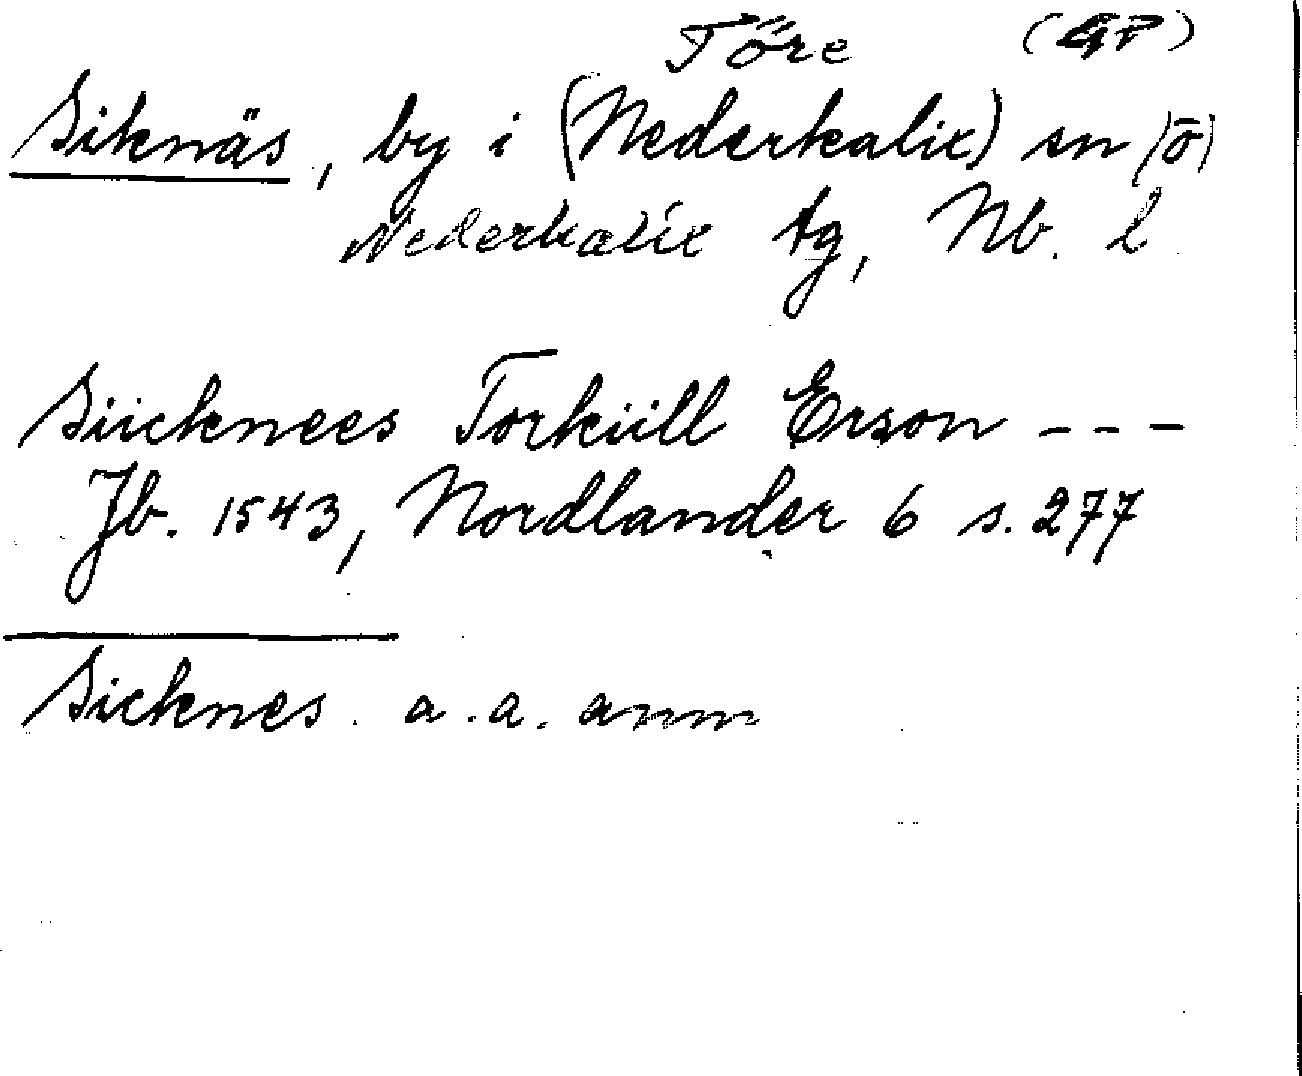 Töre (GP)
Siknäs, by i (Nederkalix) sn (ō)
Nederkalix tg, Nb. l
Siicknees Torkiill Erson ---
Jb. 1543, Nordlander 6 s. 277
Sicknes. a.a. anm